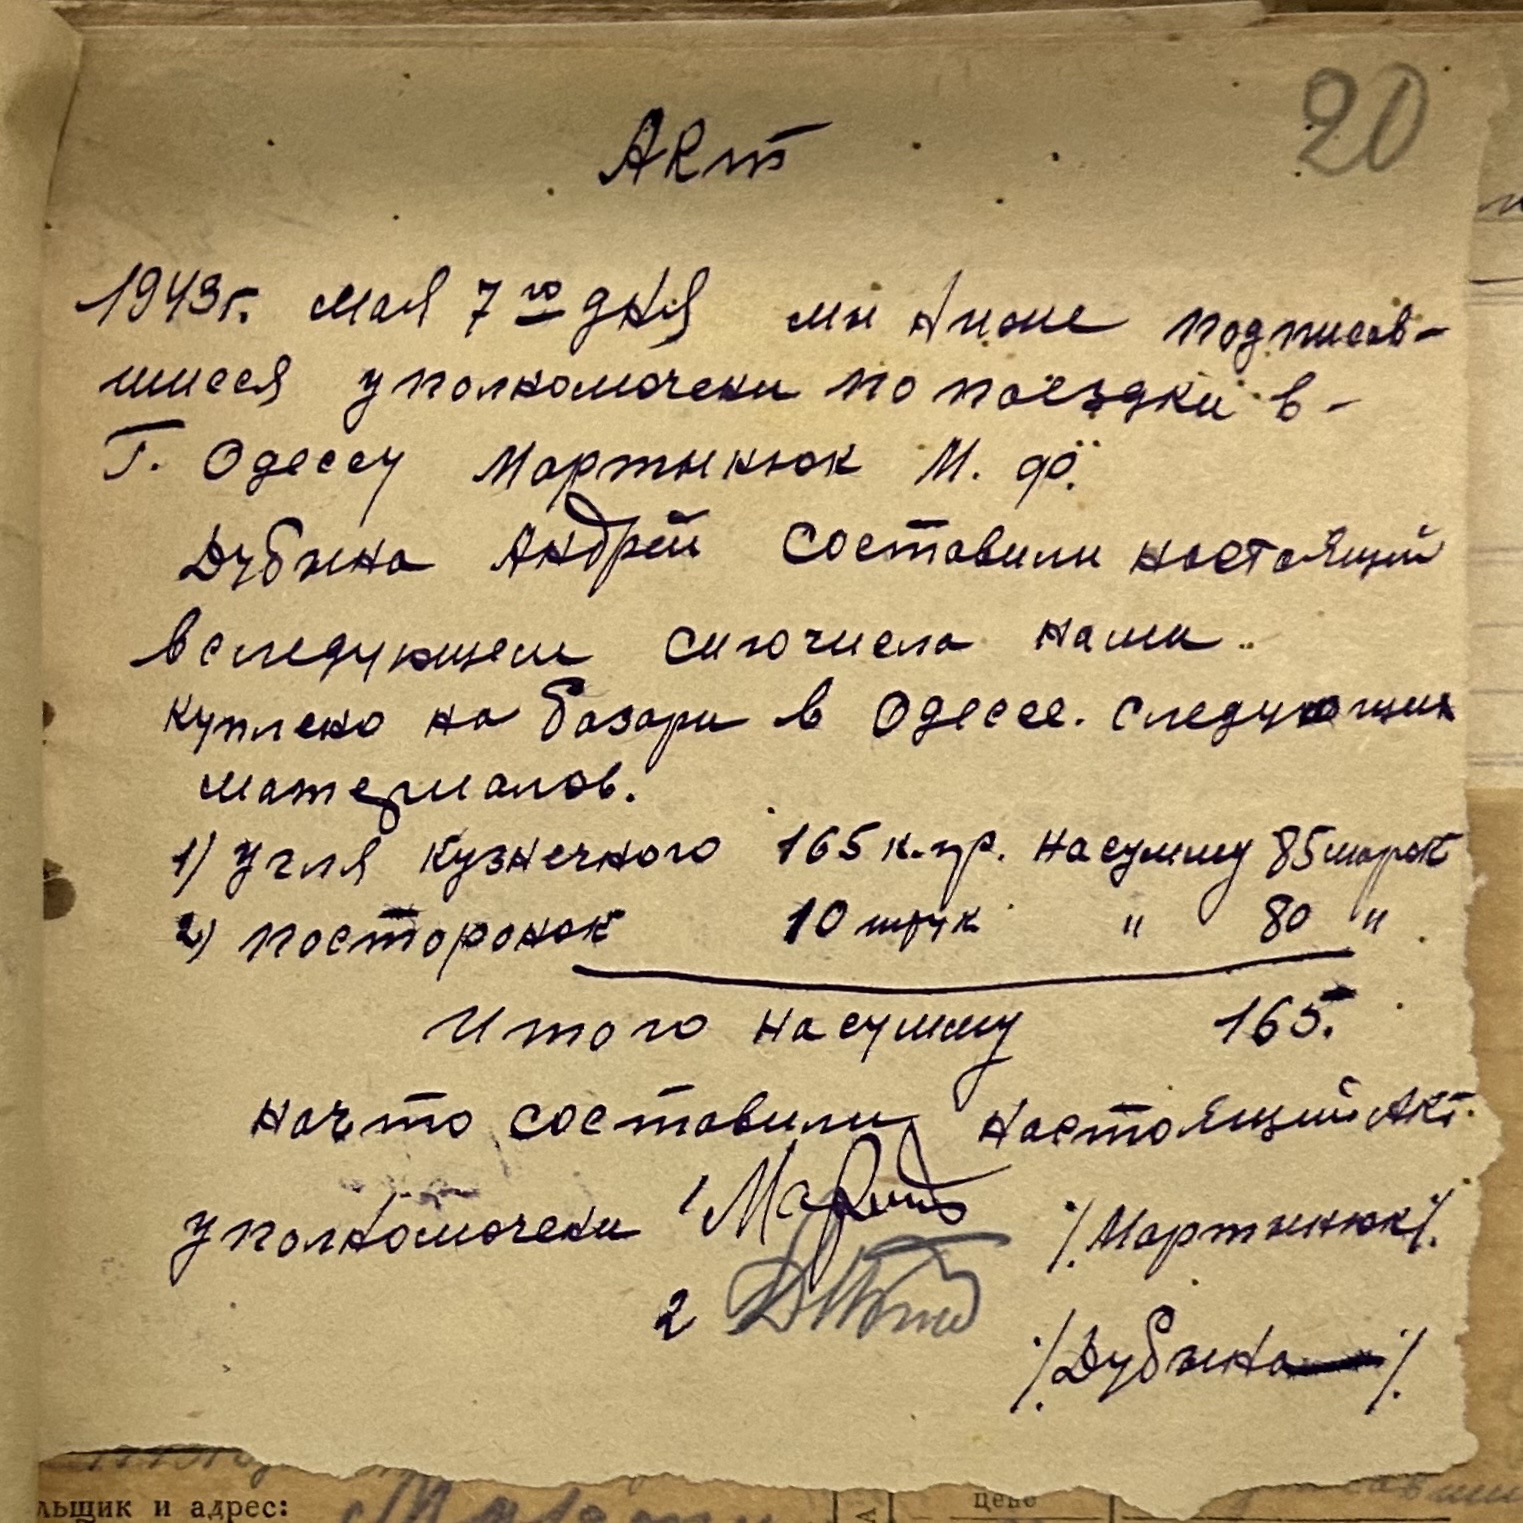 20
Акт
1943г. мая 7го дня мы ниже подписав-
шиеся уполномочени по поездки в-
г. Одессу Мартынюк М. Ф.
Дубына Андрей составили настоящий
в следующем сигочисла нами
куплено на базари в Одессе. следующих
материалов.
1) Угля кузнечного 165 к.гр. на сумму 85 марок
2) посторонок 10 штук " 80 "
Итого на сумму 165.
на что составили настоящий Акт.
уполномочени 1 /Мартынюк/.
2
/Дубына/.
льщик и адрес:
цене